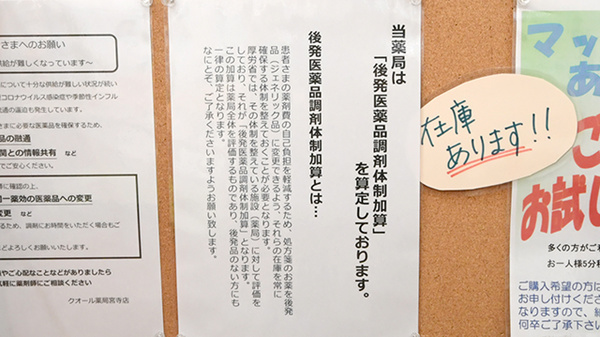 さまへのお願い
供給が難しくなっています～
について十分な供給が難しい状況が続い
コロナウイルス感染症や季節性インフル
流通の逼迫も発生しています。
さまに必要な医薬品を確保するため、
品の融通
関との情報共有 など
でご安心ください。
に確認の上、
同一薬効の医薬品への変更
変更 など
るため、調剤にお時間をいただく場合もご
どよろしくお願いいたします。
やご心配なことなどがありましたら
気軽に薬剤師にご相談ください
クオール薬局宮寺店
当薬局は
「後発医薬品調剤体制加算」
を算定しております。
後発医薬品調剤体制加算とは…
患者さまの薬剤費の自己負担を軽減するため、処方箋のお薬を後発
品(ジェネリック品)に変更できるよう、それらの在庫を常に
確保する体制を整えておくことが必要となります。
厚労省では、その体制を整えている施設(薬局)に対して評価を
しており、それが「後発医薬品調剤体制加算」となります。
この加算は薬局全体を評価するものであり、後発品のない方にも
一律の算定となります。
なにとぞ、ご了承くださいますようお願い致します。
在庫
あります!!
マッ
あ
ご
お試し
多くの方がご利
お一人様5分
ご購入希望の方は
お申し付けくださ
なりますので、
何卒ご了承下さい